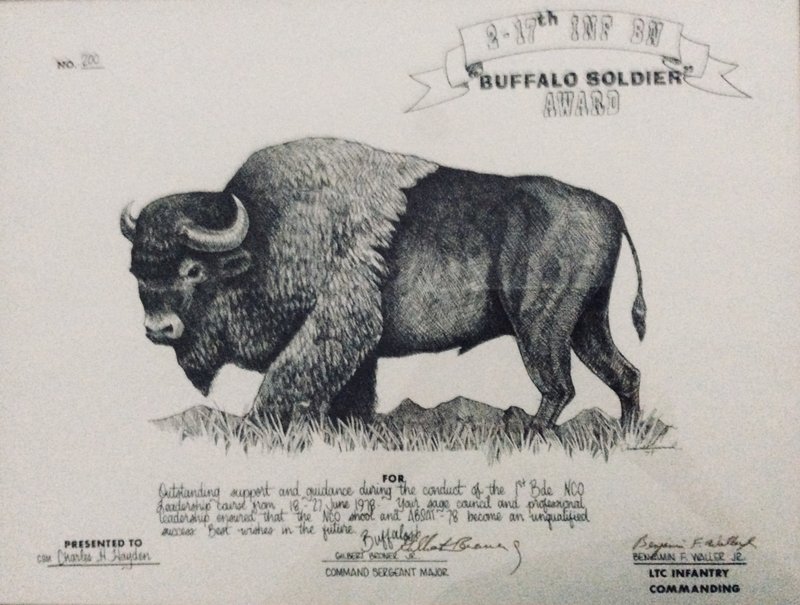 NO. 200
2-17th INF BN
"BUFFALO SOLDIER"
AWARD
FOR
Outstanding support and guidance during the conduct of the 1st Bde NCO
Leadership Course from 18-27 June 1978. Your sage council and professional
leadership ensured that the NCO shool and -78 become an unqualified
success. Best wishes in the future.
Buffalos!
PRESENTED TO
CSM Charles H. Haydon
GILBERT JR.
COMMAND SERGEANT MAJOR
Benjamin F. Waller Jr.
BENJAMIN F. WALLER JR.
LTC INFANTRY
COMMANDING